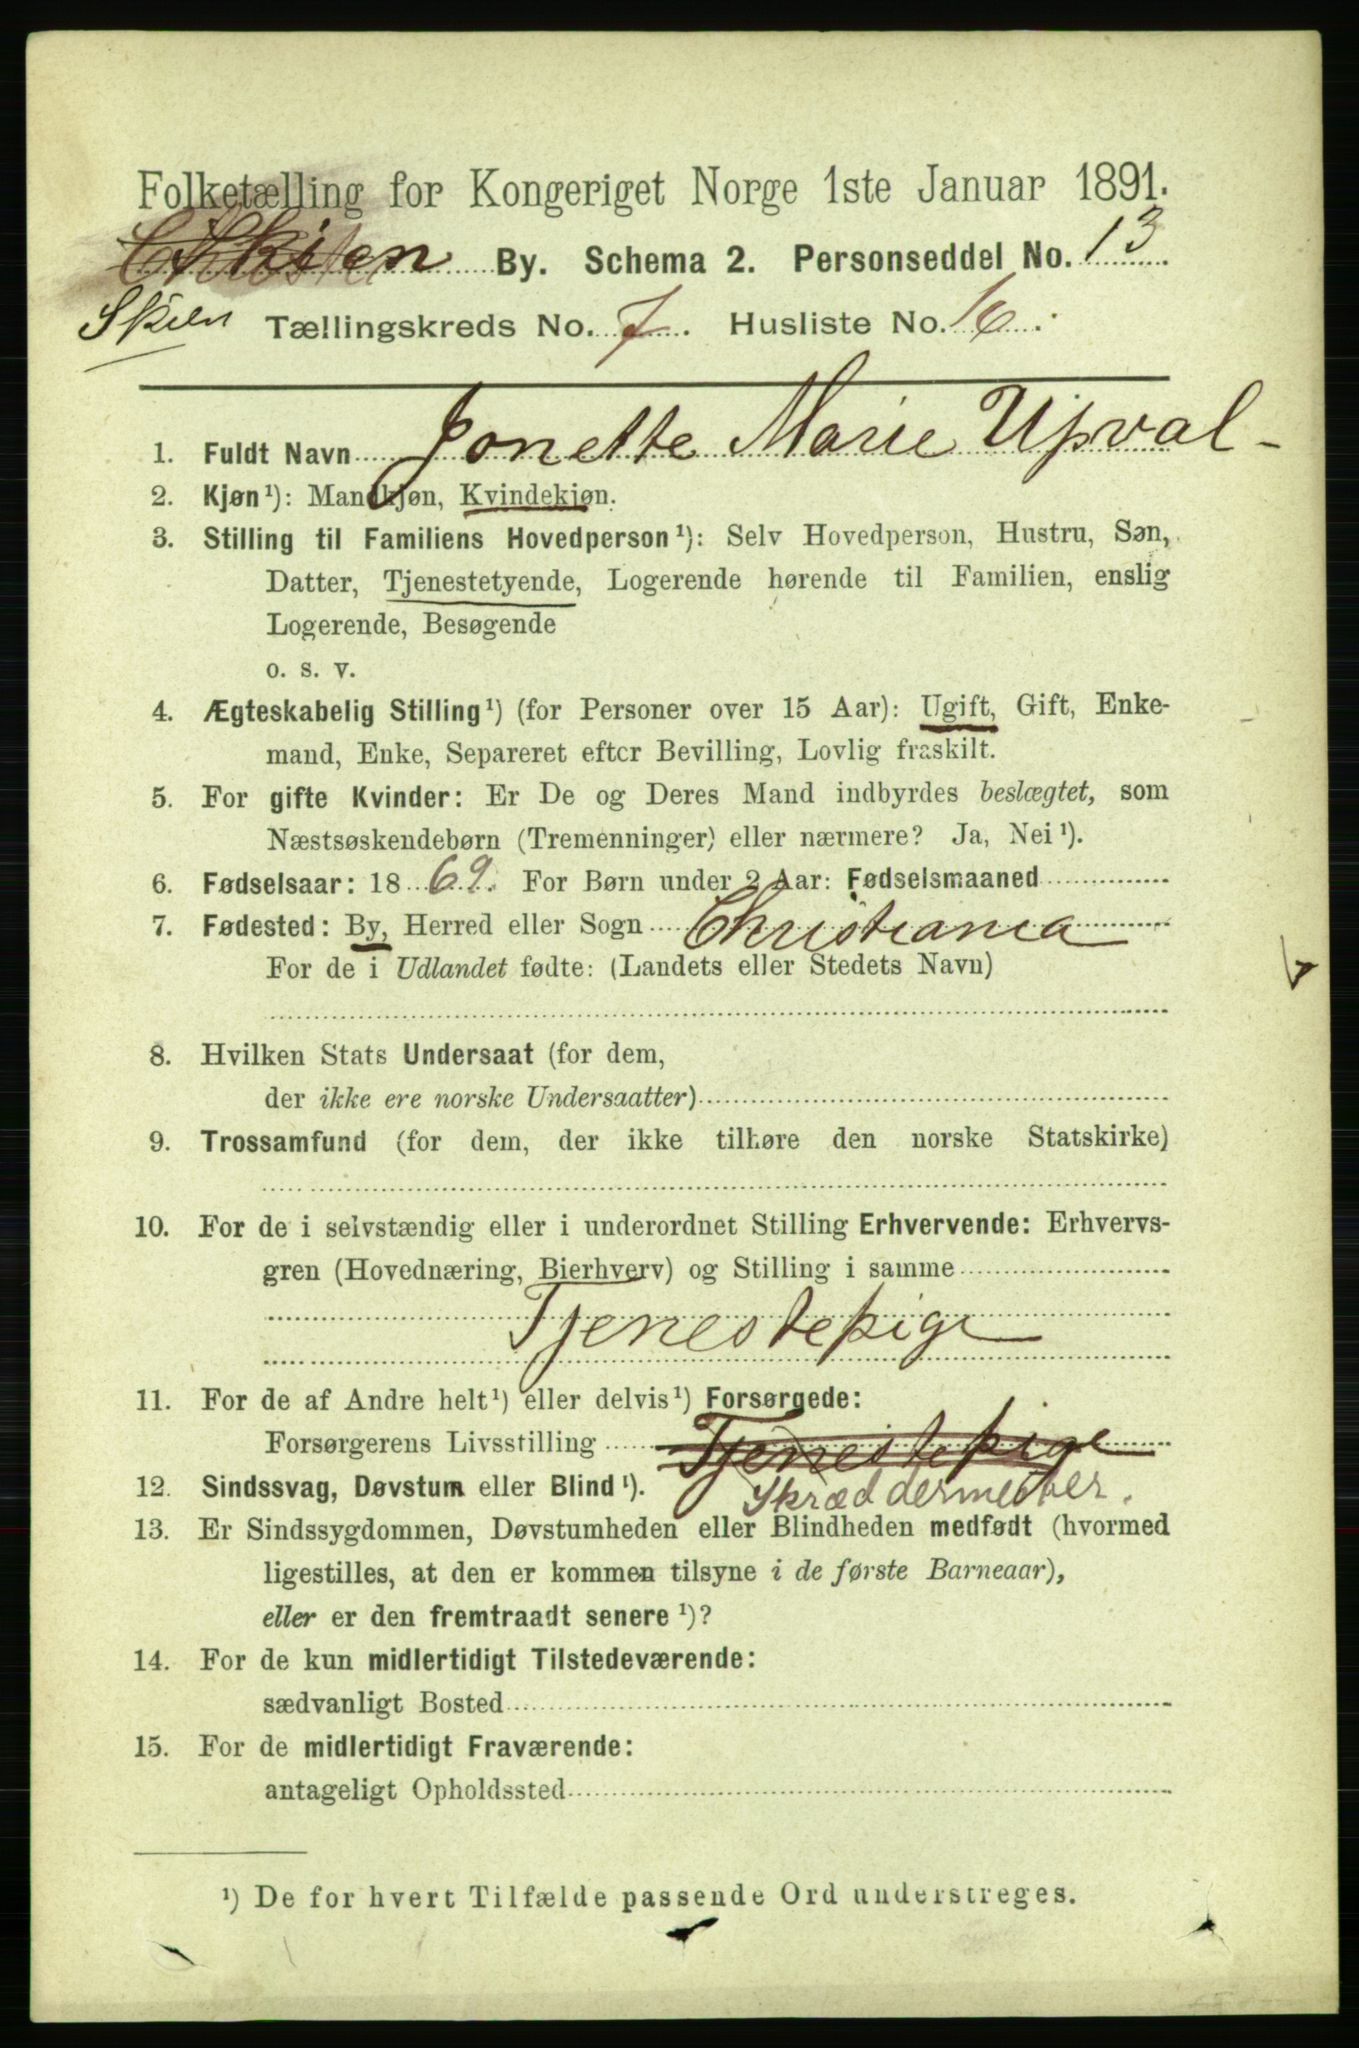 Folketælling for Kongeriget Norge 1ste Januar 1891.
Skien By. Schema 2. Personseddel No. 13
Skien Tællingskreds No. 7. Husliste No. 16.
1. Fuldt Navn Jonette Marie Upval-
2. Kjøn¹): Mandkjøn, Kvindekjøn.
3. Stilling til Familiens Hovedperson¹): Selv Hovedperson, Hustru, Søn,
Datter, Tjenestetyende, Logerende hørende til Familien, enslig
Logerende, Besøgende
o. s. v.
4. Ægteskabelig Stilling¹) (for Personer over 15 Aar): Ugift, Gift, Enke-
mand, Enke, Separeret efter Bevilling, Lovlig fraskilt.
5. For gifte Kvinder: Er De og Deres Mand indbyrdes beslægtet, som
Næstsøskendebørn (Tremenninger) eller nærmere? Ja, Nei¹).
6. Fødselsaar: 1869. For Børn under 2 Aar: Fødselsmaaned
7. Fødested: By, Herred eller Sogn Christiania
For de i Udlandet fødte: (Landets eller Stedets Navn)
8. Hvilken Stats Undersaat (for dem,
der ikke ere norske Undersaatter)
9. Trossamfund (for dem, der ikke tilhøre den norske Statskirke)
10. For de i selvstændig eller i underordnet Stilling Erhvervende: Erhvervs-
gren (Hovednæring, Bierhverv) og Stilling i samme
Tjenestepige
11. For de af Andre helt¹) eller delvis¹) Forsørgede:
Forsørgerens Livsstilling Tjenestepige
Skræddermester.
12. Sindssvag, Døvstum eller Blind¹).
13. Er Sindssygdommen, Døvstumheden eller Blindheden medfødt (hvormed
ligestilles, at den er kommen tilsyne i de første Barneaar),
eller er den fremtraadt senere¹)?
14. For de kun midlertidigt Tilstedeværende:
sædvanligt Bosted
15. For de midlertidigt Fraværende:
antageligt Opholdssted
¹) De for hvert Tilfælde passende Ord understreges.